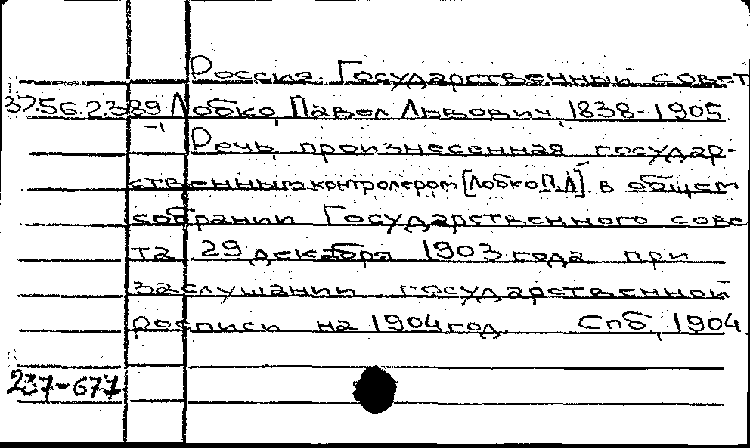 Россия. Государственный совет
37.56.2.389 Лобко, Павел Львович, 1838-1905
-1 Речь, произнесенная государ-
ственным контролером [Лобко П.Л] в общем
собрании Государственного сове
та 29 декабря 1903 года при
заслушании государственной
росписи на 1904 год. Спб, 1904.
237-677